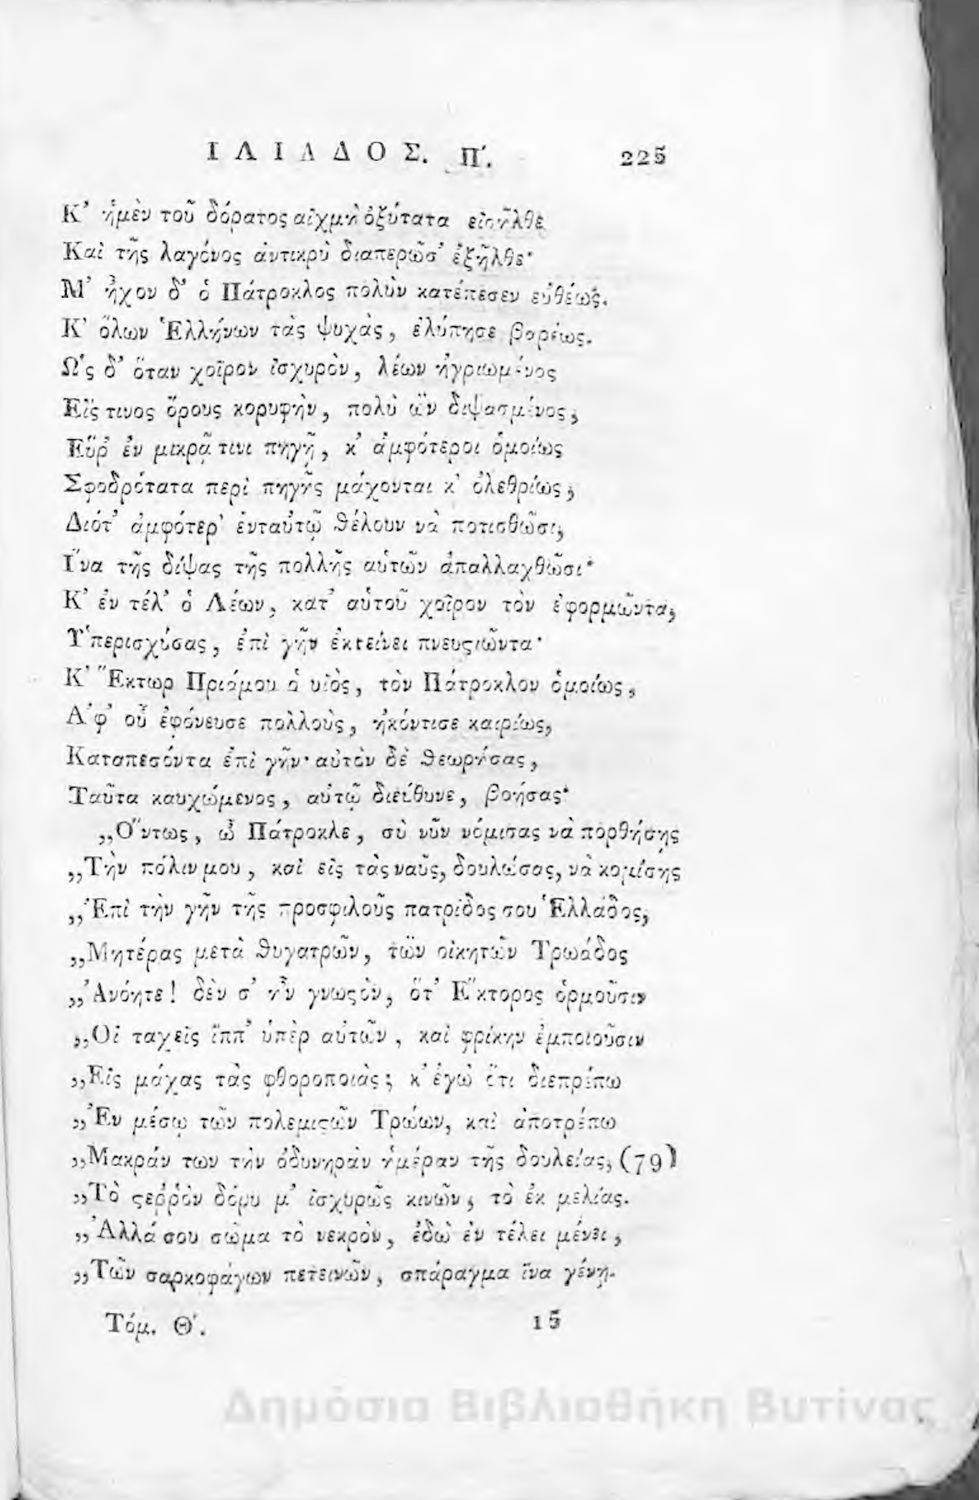 ΙΛΙΑΔΟΣ. Π΄. 225
Κ' ἡμὲν τοῦ δόρατος αἰχμὴ ὀξύτατα εἰσῆλθε
Καὶ τῆς λαγόνος ἀντικρὺ διαπερῶσ' ἐξῆλθε·
Μ' ἦχον δ' ὁ Πάτροκλος πολὺν κατέπεσεν εὐθέως.
Κ' ὅλων Ἑλλήνων τὰς ψυχὰς, ἐλύπησε βαρέως.
Ὡς δ' ὅταν χοῖρον ἰσχυρὸν, λέων ἠγριωμένος
Εἴς τινος ὄρους κορυφὴν, πολὺ ὢν διψασμένος,
Εὕρ' ἐν μικρᾷ τινι πηγῇ, κ' ἀμφότεροι ὁμοίως
Σφοδρότατα περὶ πηγῆς μάχονται κ' ὀλεθρίως,
Διότ' ἀμφότερ' ἐνταύτῳ θέλουν νὰ ποτισθῶσι,
Ἵνα τῆς δίψας τῆς πολλῆς αὑτῶν ἀπαλλαχθῶσι·
Κ' ἐν τέλ' ὁ Λέων, κατ' αὐτοῦ χοῖρον τὸν ἐφορμῶντα,
Ὑπερισχύσας, ἐπὶ γῆν ἐκτείνει πνευςιῶντα·
Κ' Ἕκτωρ Πριάμου ὁ υἱὸς, τὸν Πάτροκλον ὁμοίως,
Ἀφ' οὗ ἐφόνευσε πολλοὺς, ἠκόντισε καιρίως,
Καταπεσόντα ἐπὶ γῆν· αὐτὸν δὲ θεωρήσας,
Ταῦτα καυχώμενος, αὐτῷ διεύθυνε, βοήσας·
„Ὄντως, ὦ Πάτροκλε, σὺ νῦν νόμισας νὰ πορθήσῃς
„Τὴν πόλιν μου, καὶ εἰς τὰς ναῦς, δουλώσας, νὰ κομίσῃς
„Ἐπὶ τὴν γῆν τῆς προσφιλοῦς πατρίδος σου Ἑλλάδος,
„Μητέρας μετὰ θυγατρῶν, τῶν οἰκητῶν Τρωάδος
„Ἀνόητε! δὲν σ' ἦν γνωςὸν, ὅτ' Ἕκτορος ὁρμοῦσιν
„Οἱ ταχεῖς ἵππ' ὑπὲρ αὐτῶν, καὶ φρίκην ἐμποιοῦσιν
„Εἰς μάχας τὰς φθοροποιάς; κ' ἐγὼ ὅτι διεπρέπω
„Ἐν μέσῳ τῶν πολεμιςῶν Τρώων, καὶ ἀποτρέπω
„Μακράν των τὴν ὀδυνηρὰν ἡμέραν τῆς δουλείας, (79)
„Τὸ ςεῤῥὸν δόρυ μ' ἰσχυρῶς κινῶν, τὸ ἐκ μελίας.
„Ἀλλά σου σῶμα τὸ νεκρὸν, ἐδὼ ἐν τέλει μένει,
„Τῶν σαρκοφάγων πετεινῶν, σπάραγμα ἵνα γένῃ.
Τόμ. Θ΄. 15
Δημόσια Βιβλιοθήκη Βυτίνας